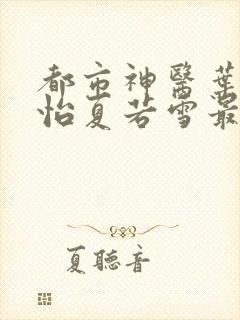 都市神醫葉
怡夏若雪最
夏聽音